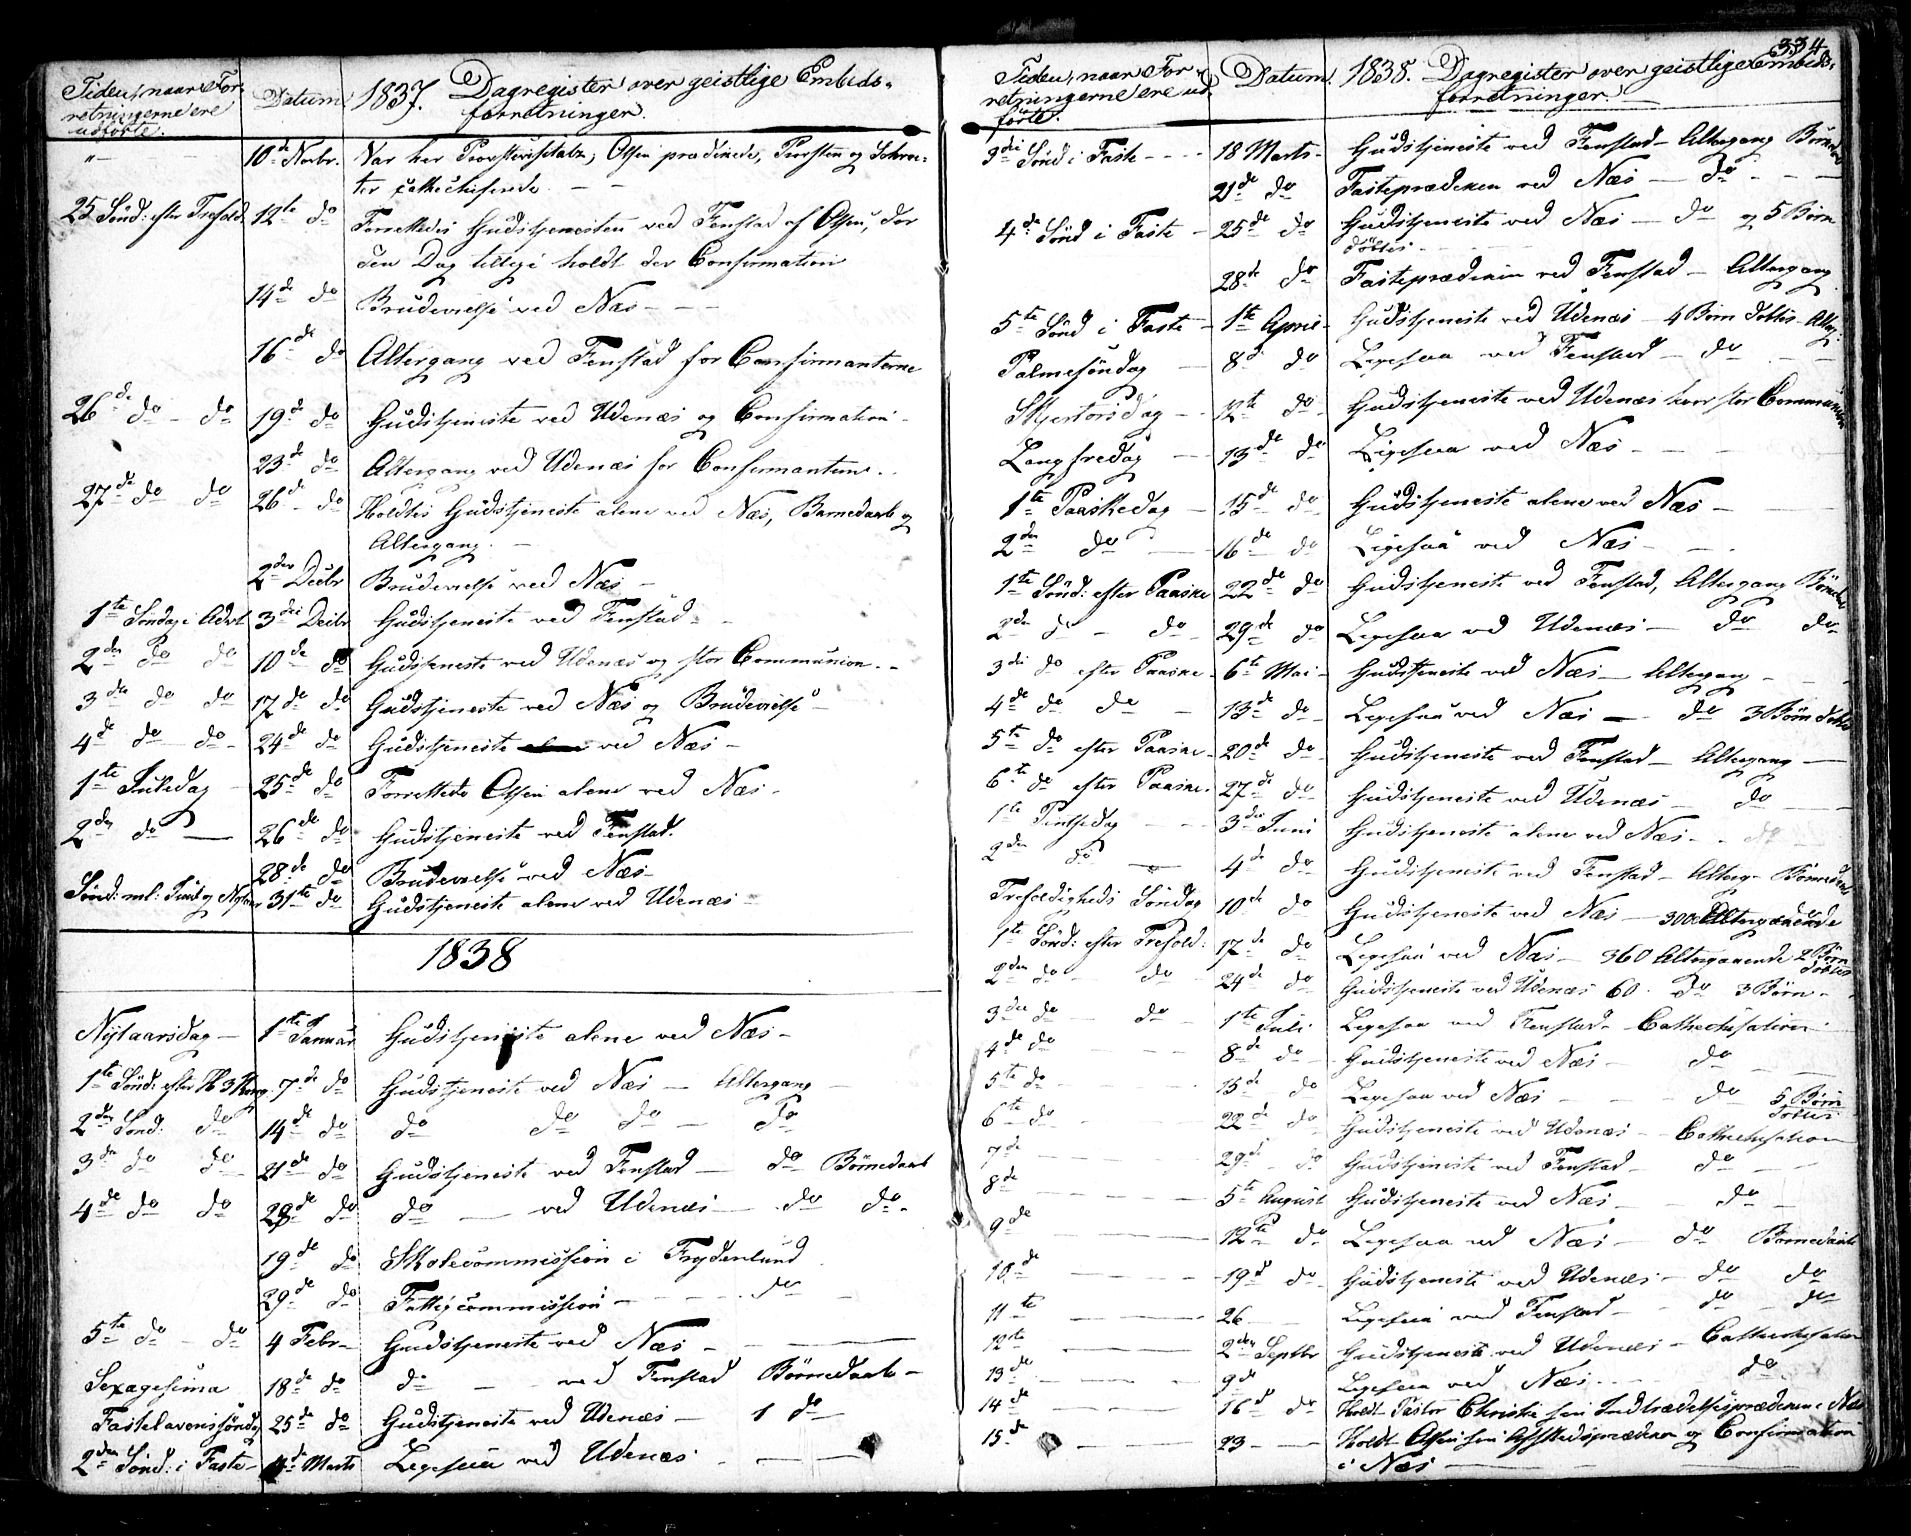 Tiden, naar For-
retningerne ere
udförte.
Datum.
1837. Dagregister over geistlige Embeds-
forretninger.
"— 10de Novbr. Var her Provstevisitats, Olsen prædikede, Provsten og Schrø-
ter catechiserede. — —
25 Sönd: efter Trefold. 12te do Forrettedes Gudstjenesten ved Fenstad af Olsen, der
den Dag tillige holdt der Confirmation
14de do Brudevielse ved Næs — —
16de do Altergang ved Fenstad for Confirmanterne
26de do - do 19de do Gudstjeneste ved Udenæs og Confirmation -
23de do Altergang ved Udenæs for Confirmanterne.
27de do do 26de do Holdtes Gudstjeneste alene ved Næs, Barnedaab og
Altergang. —
2den Decbr Brudevielse ved Næs —
1te Söndag i Advt 3die Decbr Gudstjeneste ved Fenstad —
2den do do 10de do Gudstjeneste ved Udenæs og stor Communion. -
3die do do 17de do Gudstjeneste ved Næs og Brudevielse —
4de do do - 24de do Gudstjeneste ved Næs —
1te Juledag 25de do Forrettede Olsen alene ved Næs -
2den do — 26de do Gudstjeneste ved Fenstad.
28de do Brudevielse ved Næs
Sönd: ml: Juul og Nytaar 31te do Gudstjeneste alene ved Udenæs —
1838
Nytaarsdag — 1te Januar Gudstjeneste alene ved Næs —
1te Sönd: efter H 3 Kong. 7de do Gudstjeneste ved Næs — Altergang —
2den Sönd: do 14de do do do do — do
3die do do 21de do Gudstjeneste ved Fenstad — do Börnedaab
4de do do 28de do do — ved Udenæs — do do -
19de do Skolecommission i Frydenlund
29de do Fattigcommission — — do —
5te do - do 4 Febr — Gudstjeneste ved Næs —
Sexagesima 18de do do — ved Fenstad Börnedaab —
Fastelavenssöndag 25de do Gudstjeneste ved Udenæs — 1 do
2den Sönd: i Faste - 4de Marts Ligesaa ved Udenæs - —
334
Tiden, naar For-
retningerne ere ud-
förte.
Datum.
1838. Dagregister over geistlige Embeds-
forretninger. —
3die Sönd i Faste - - - 18 Marts - Gudstjeneste ved Fenstad — Altergang Börnedaab
21de do Fasteprædiken ved Næs — do - - —
4de Sönd i Faste - 25de do Gudstjeneste ved Næs — do og 5 Börn
döbtes
28de do Fasteprædiken ved Fenstad — Altergang
5te Sönd i Faste - 1te April - Gudstjeneste ved Udenæs — 4 Börn döbtes - Alterg.
Palmesöndag — 8de do Ligesaa ved Fenstad — do - —
Skjertorsdag - - 12te do Gudstjeneste ved Udenæs hvor stor Communion
Langfredag — 13de do Ligesaa ved Næs - — —
1te Paaskedag — 15de do Gudstjeneste alene ved Næs —
2den do — 16de do Ligesaa ved Næs - —
1te Sönd: efter Paaske 22de do Gudstjeneste ved Fenstad, Altergang Börnedaab
2den do - do 29de do Ligesaa ved Udenæs — do do
3die do efter Paaske - 6te Mai - Gudstjeneste ved Næs — Altergang - -
4de do do — 13de do - Ligesaa ved Næs — do 3 Börn döbtes
5te do efter Paaske - 20de do - Gudstjeneste ved Fenstad — Altergang —
6te do efter Paaske - 27de do - Gudstjeneste ved Udenæs — do —
1te Pintsedag - - 3die Juni Gudstjeneste alene ved Næs - - do -
2den do — 4de do - Gudstjeneste ved Fenstad - Alterg - Börnedaab
Trefoldigheds Söndag 10de do Gudstjeneste ved Næs — 300 Altergaaende
1te Sönd: efter Trefold: 17de do Ligesaa ved Næs — 360 Altergaaende 2 Börn
döbtes
2den do - do - 24de do Gudstjeneste ved Udenæs 60 do 3 Börn -
3die do — do - 1te Juli Ligesaa ved Fenstad - Cathechisation
4de do - - 8de do - Gudstjeneste ved Næs — do —
5te do - - - 15de do Ligesaa ved Næs - - - do 5 Börn
döbtes
6te do - - 22de do Gudstjeneste ved Udenæs — Cathechisation
7de - - - 29de do Gudstjeneste ved Fenstad — do — —
8de - - - 5te August Gudstjeneste ved Næs — do -
9de - - - 12te do Ligesaa ved Næs — do Börnedaab
10de - - - 19de do - Gudstjeneste ved Udenæs - do do
11te - - - 26 — Ligesaa ved Fenstad — do - do
12te - - - 2den Septbr Gudstjeneste ved Udenæs - Cathechisation
13de - - - 9de Ligesaa ved Næs - - do
14de - - - 16de do Holdt Pastor Christie sin Indtrædelsesprædiken i Næs
15de - - - 23 — Holdt Olsen sin Afskedsprædiken og Confirmation
i Næs — —